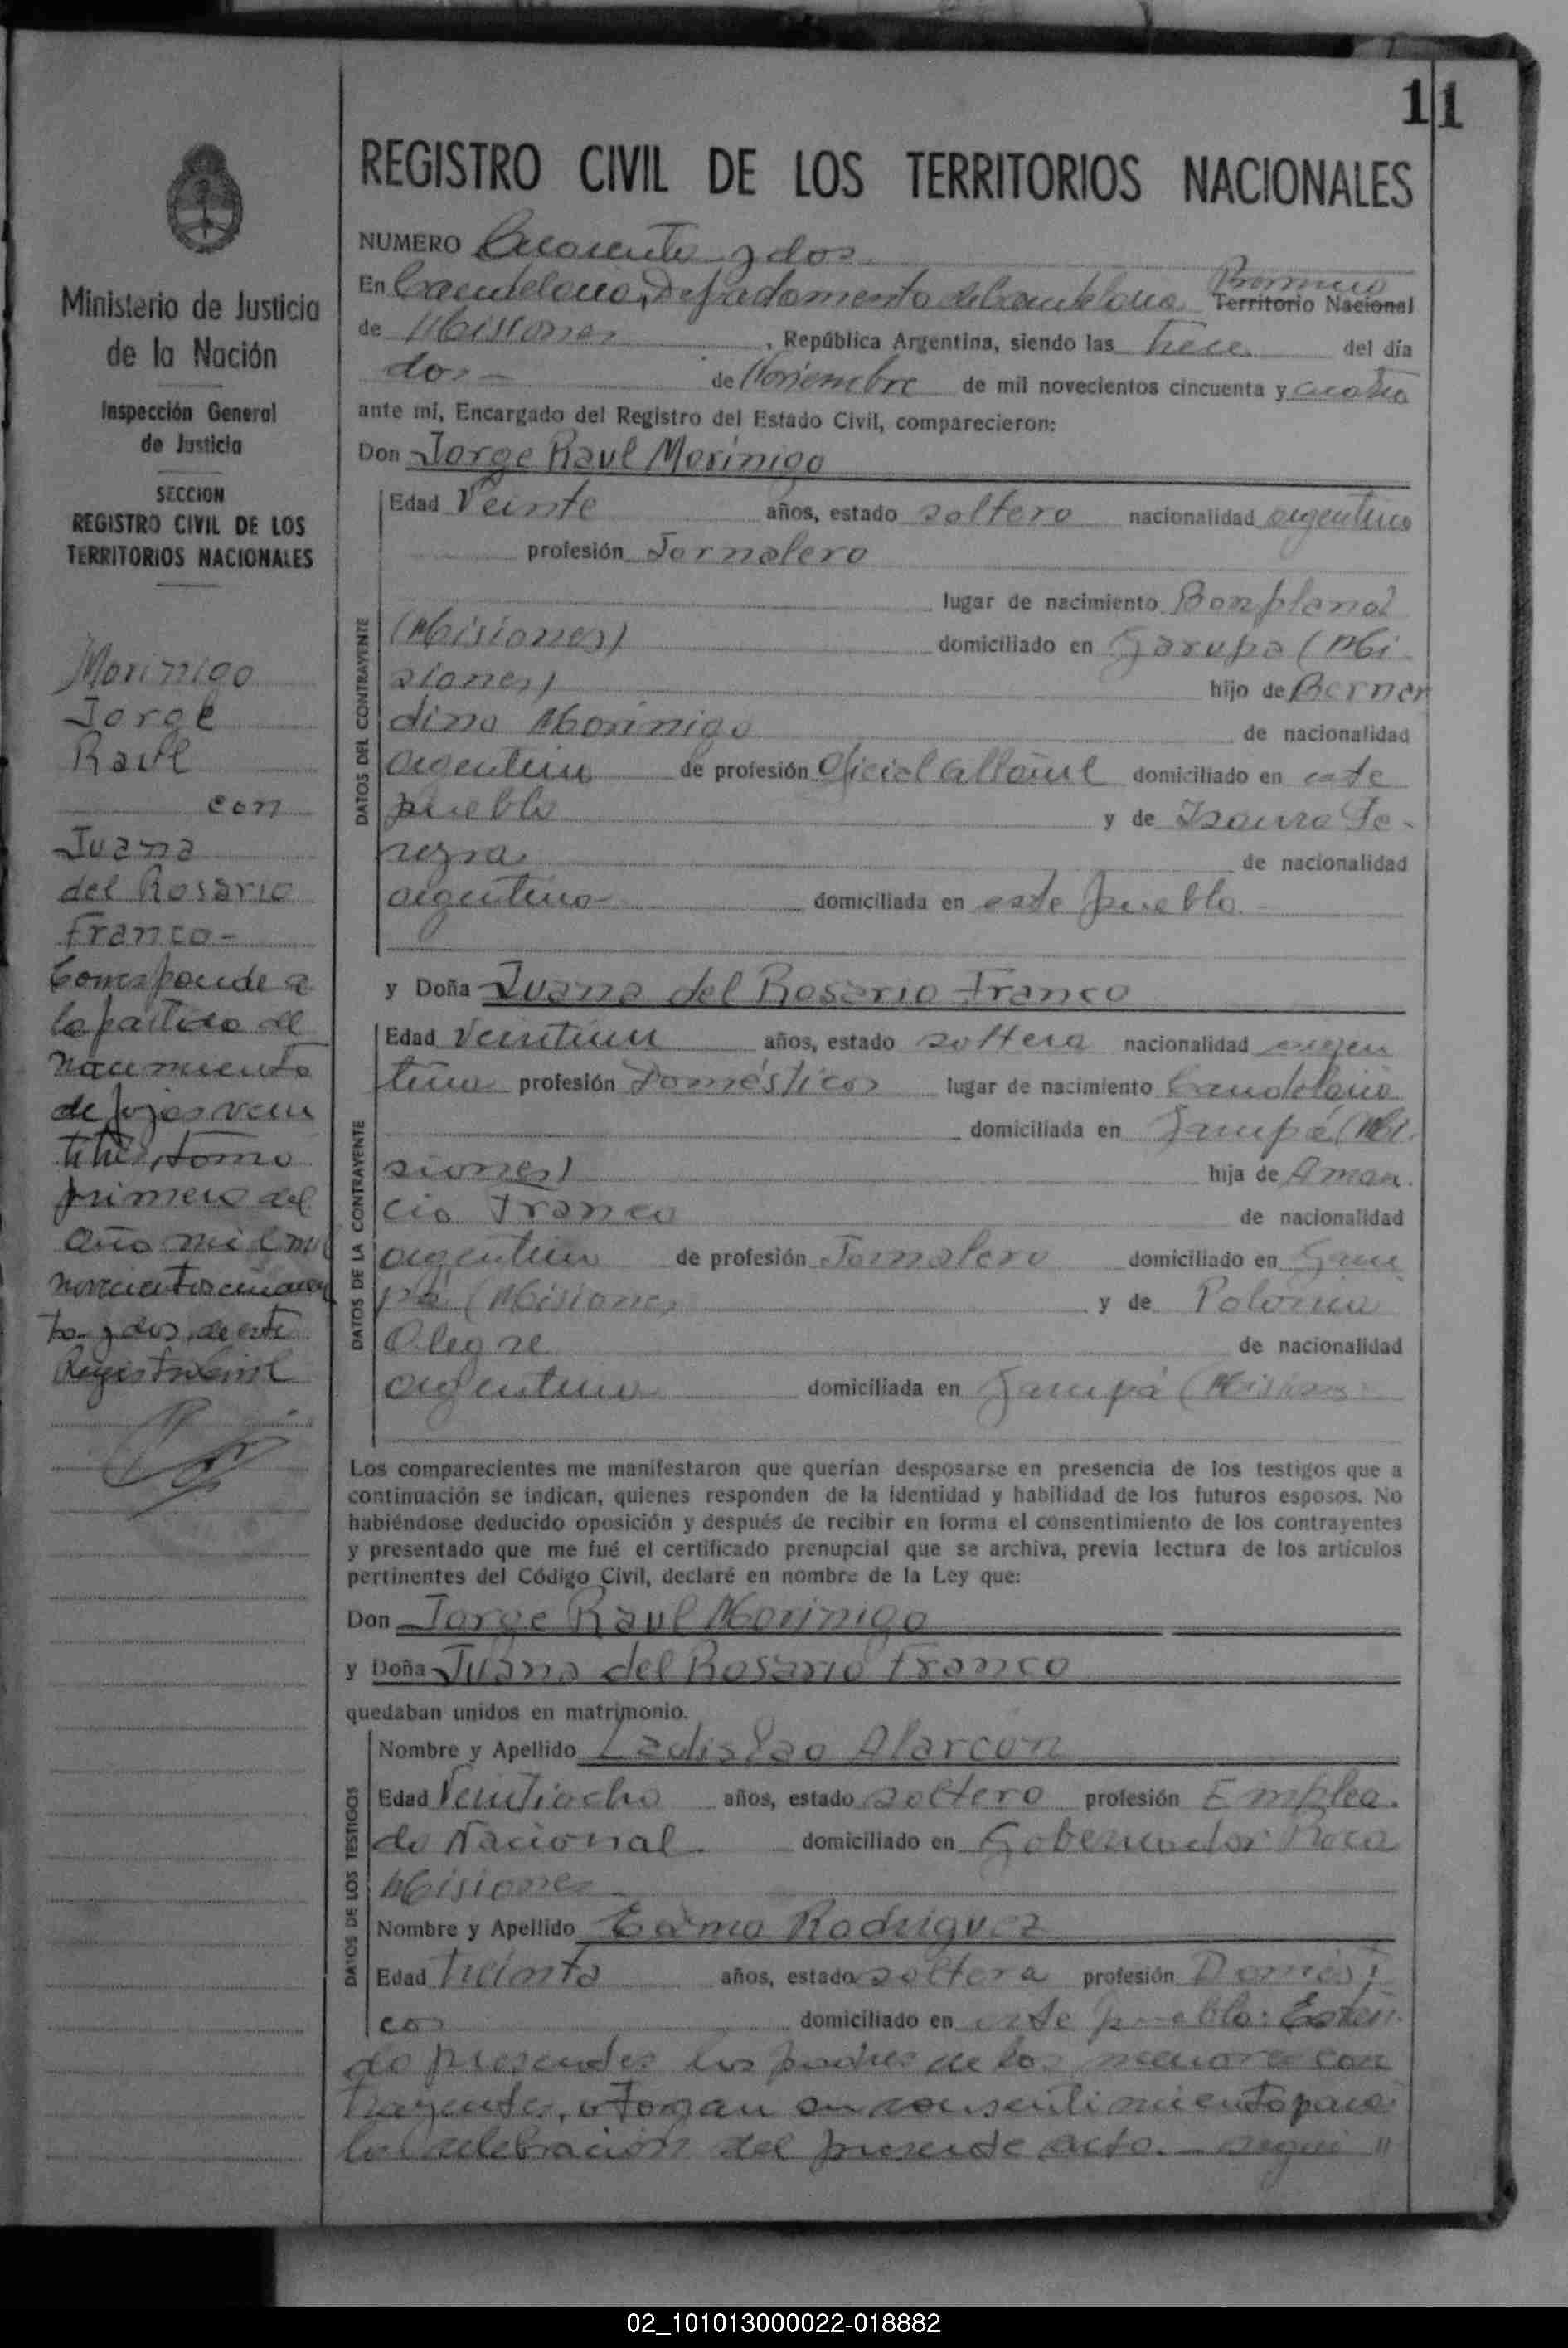 11
REGISTRO CIVIL DE LOS TERRITORIOS NACIONALES
Ministerio de Justicia
de la Nación
Inspección General
de Justicia
SECCION
REGISTRO CIVIL DE LOS
TERRITORIOS NACIONALES
Morinigo
Jorge
Raul
con
Juana
del Rosario
Franco-
Corresponde a
la partida de
nacimiento
de fojas vein
titres, tomo
primero del
año mil
novecientos cuaren
ta y dos, de este
Registro Civil
NUMERO Cuarenta y dos
En Candelaria, Departamento de Candelaria Territorio Nacional
de Misiones, República Argentina, siendo las trece del día
dos- de Noviembre de mil novecientos cincuenta y cuatro
ante mi, Encargado del Registro del Estado Civil, comparecieron:
Don Jorge Raul Morinigo
DATOS DEL CONTRAYENTE
Edad Veinte años, estado soltero nacionalidad argentino
profesión Jornalero
lugar de nacimiento Bonpland
(Misiones) domiciliado en Garupa (Mi
siones) hijo de Bernar
dino Morinigo de nacionalidad
argentino de profesión Oficial albañil domiciliado en este
pueblo y de Isaura Fe-
reyra de nacionalidad
argentina domiciliada en este pueblo-
y Doña Juana del Rosario Franco
DATOS DE LA CONTRAYENTE
Edad Veintiun años, estado soltera nacionalidad argen
tina profesión Domésticos lugar de nacimiento Candelaria
domiciliada en Garupá (Mi.
siones) hija de Aman.
cio Franco de nacionalidad
argentino de profesión Jornalero domiciliado en Garu
pá (Misiones y de Polonia
Alegre de nacionalidad
argentina domiciliada en Garupá (Misiones
Los comparecientes me manifestaron que querían desposarse en presencia de los testigos que a
continuación se indican, quienes responden de la identidad y habilidad de los futuros esposos. No
habiéndose deducido oposición y después de recibir en forma el consentimiento de los contrayentes
y presentado que me fué el certificado prenupcial que se archiva, previa lectura de los artículos
pertinentes del Código Civil, declaré en nombre de la Ley que:
Don Jorge Raul Morinigo
y Doña Juana del Rosario Franco
quedaban unidos en matrimonio.
DATOS DE LOS TESTIGOS
Nombre y Apellido Ladislao Alarcon
Edad Veintiocho años, estado soltero profesión Emplea.
do Nacional domiciliado en Gobernador Roca
Misiones
Nombre y Apellido Rodriguez
Edad treinta años, estado soltera profesión Domésti
cos domiciliado en este pueblo: Estan
do presentes los padres de los menores con
trayentes, otorgan su consentimiento para
la celebración del presente acto.- segui "
02_101013000022-018882